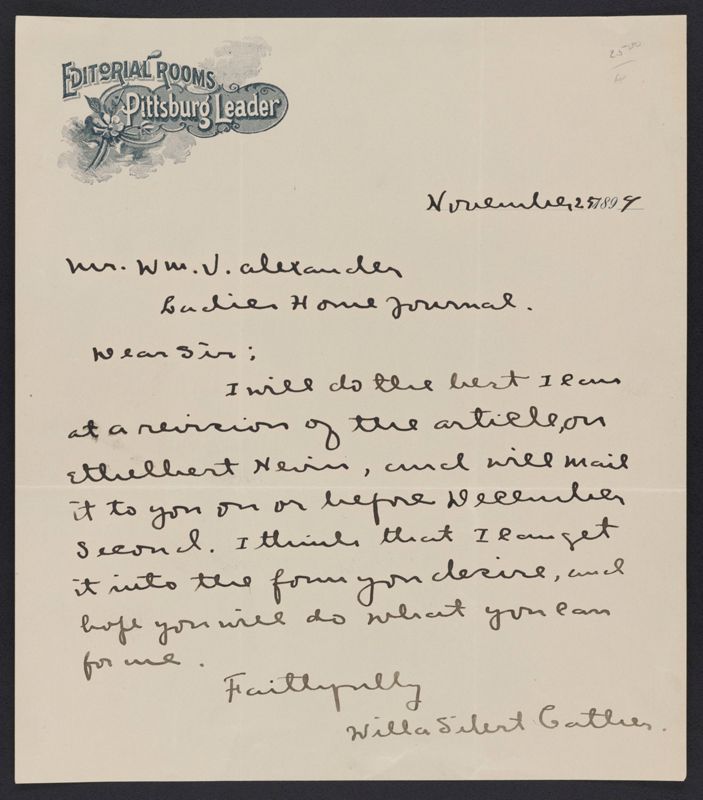 Editorial Rooms
Pittsburg Leader
25.00
November 25 1899
Mr. Wm. V. Alexander
Ladies Home Journal.
Dear Sir;
I will do the best I can
at a revision of the article, on
Ethelbert Nevin, and will mail
it to you on or before December
Second. I think that I can get
it into the form you desire, and
hope you will do what you can
for me.
Faithfully
Willa Sibert Cather.